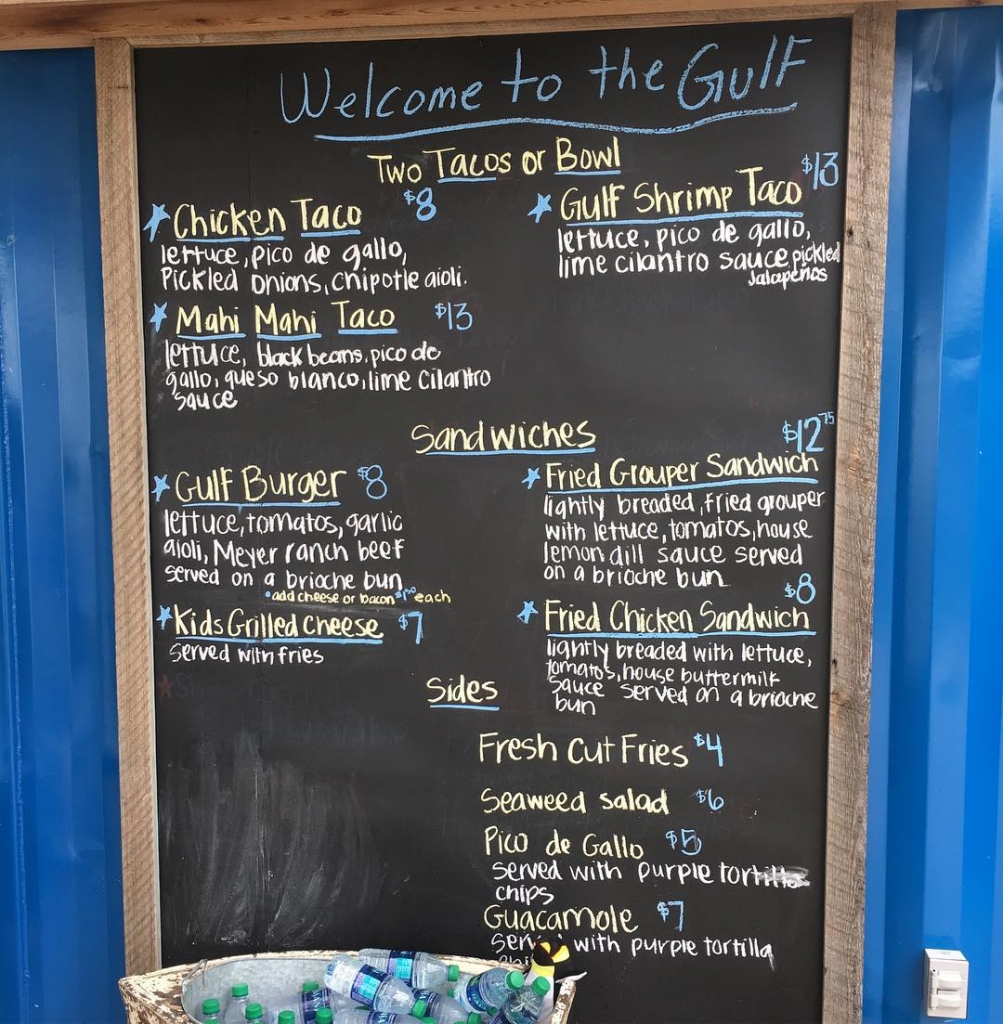 Welcome to the Gulf
Two Tacos or Bowl
Chicken Taco $8
lettuce, pico de gallo,
Pickled onions, chipotle aioli.
Mahi Mahi Taco $13
lettuce, black beans, pico de
gallo, queso blanco, lime cilantro
sauce
Gulf Shrimp Taco $13
lettuce, pico de gallo,
lime cilantro sauce pickled
Jalapeños
Sandwiches
Gulf Burger $8
lettuce, tomatos, garlic
aioli, Meyer ranch beef
served on a brioche bun
•add cheese or bacon $1.00 each
Kids Grilled Cheese $7
served with fries
$12 75
Fried Grouper Sandwich
lightly breaded, fried grouper
with lettuce, tomatos, house
lemon dill sauce served
on a brioche bun
$8
Fried Chicken Sandwich
lightly breaded with lettuce,
tomatos, house buttermilk
sauce served on a brioche
bun
Sides
Fresh Cut Fries $4
Seaweed salad $6
Pico de Gallo $5
served with purple tortilla
chips
Guacamole $7
with purple tortilla